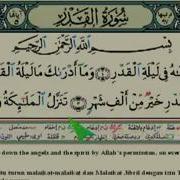 سُورَةُ الْقَدْرِ
بِسْمِ اللَّهِ الرَّحْمَٰنِ الرَّحِيمِ
فِي لَيْلَةِ الْقَدْرِ وَمَا أَدْرَىٰكَ مَا لَيْلَةُ الْقَدْ
قَدْرِ خَيْرٌ مِنْ أَلْفِ شَهْرٍ تَنَزَّلُ الْمَلَٰئِكَةُ
down the angels and the spirit by Allah's permission, on ever
turun malaikat-malaikat dan Malaikat Jibril dengan izin